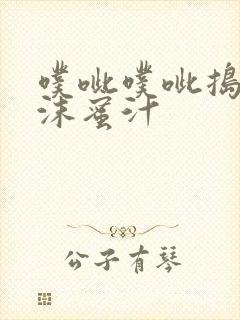 噗呲噗呲搗
沫蜜汁
公子有琴